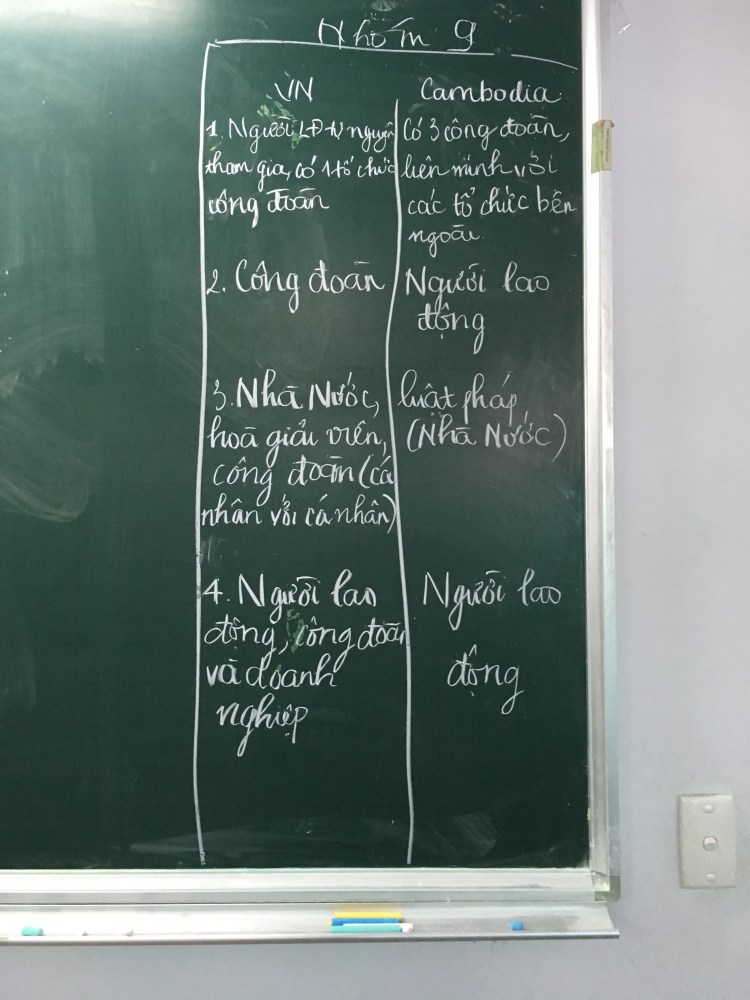 Nhóm 9
VN
1. Người LĐ tự nguyện
tham gia, có 1 tổ chức
công đoàn
2. Công đoàn
3. Nhà Nước,
hoà giải viên,
công đoàn (cá
nhân với cá nhân)
4. Người lao
động, công đoàn
và doanh
nghiệp
Cambodia
Có 3 công đoàn,
liên minh với
các tổ chức bên
ngoài.
Người lao
động
luật pháp
(Nhà Nước)
Người lao
động